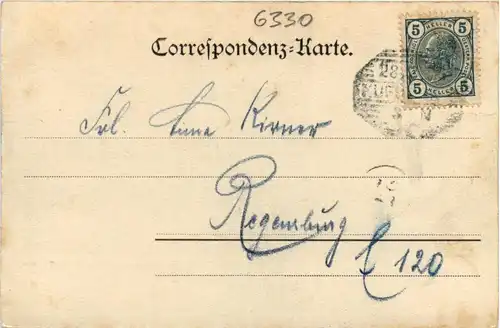 6330
Correspondenz-Karte.
5 HELLER 5
28
5 HELLER 5
Frl. Anna Kirner
Regensburg
E 120